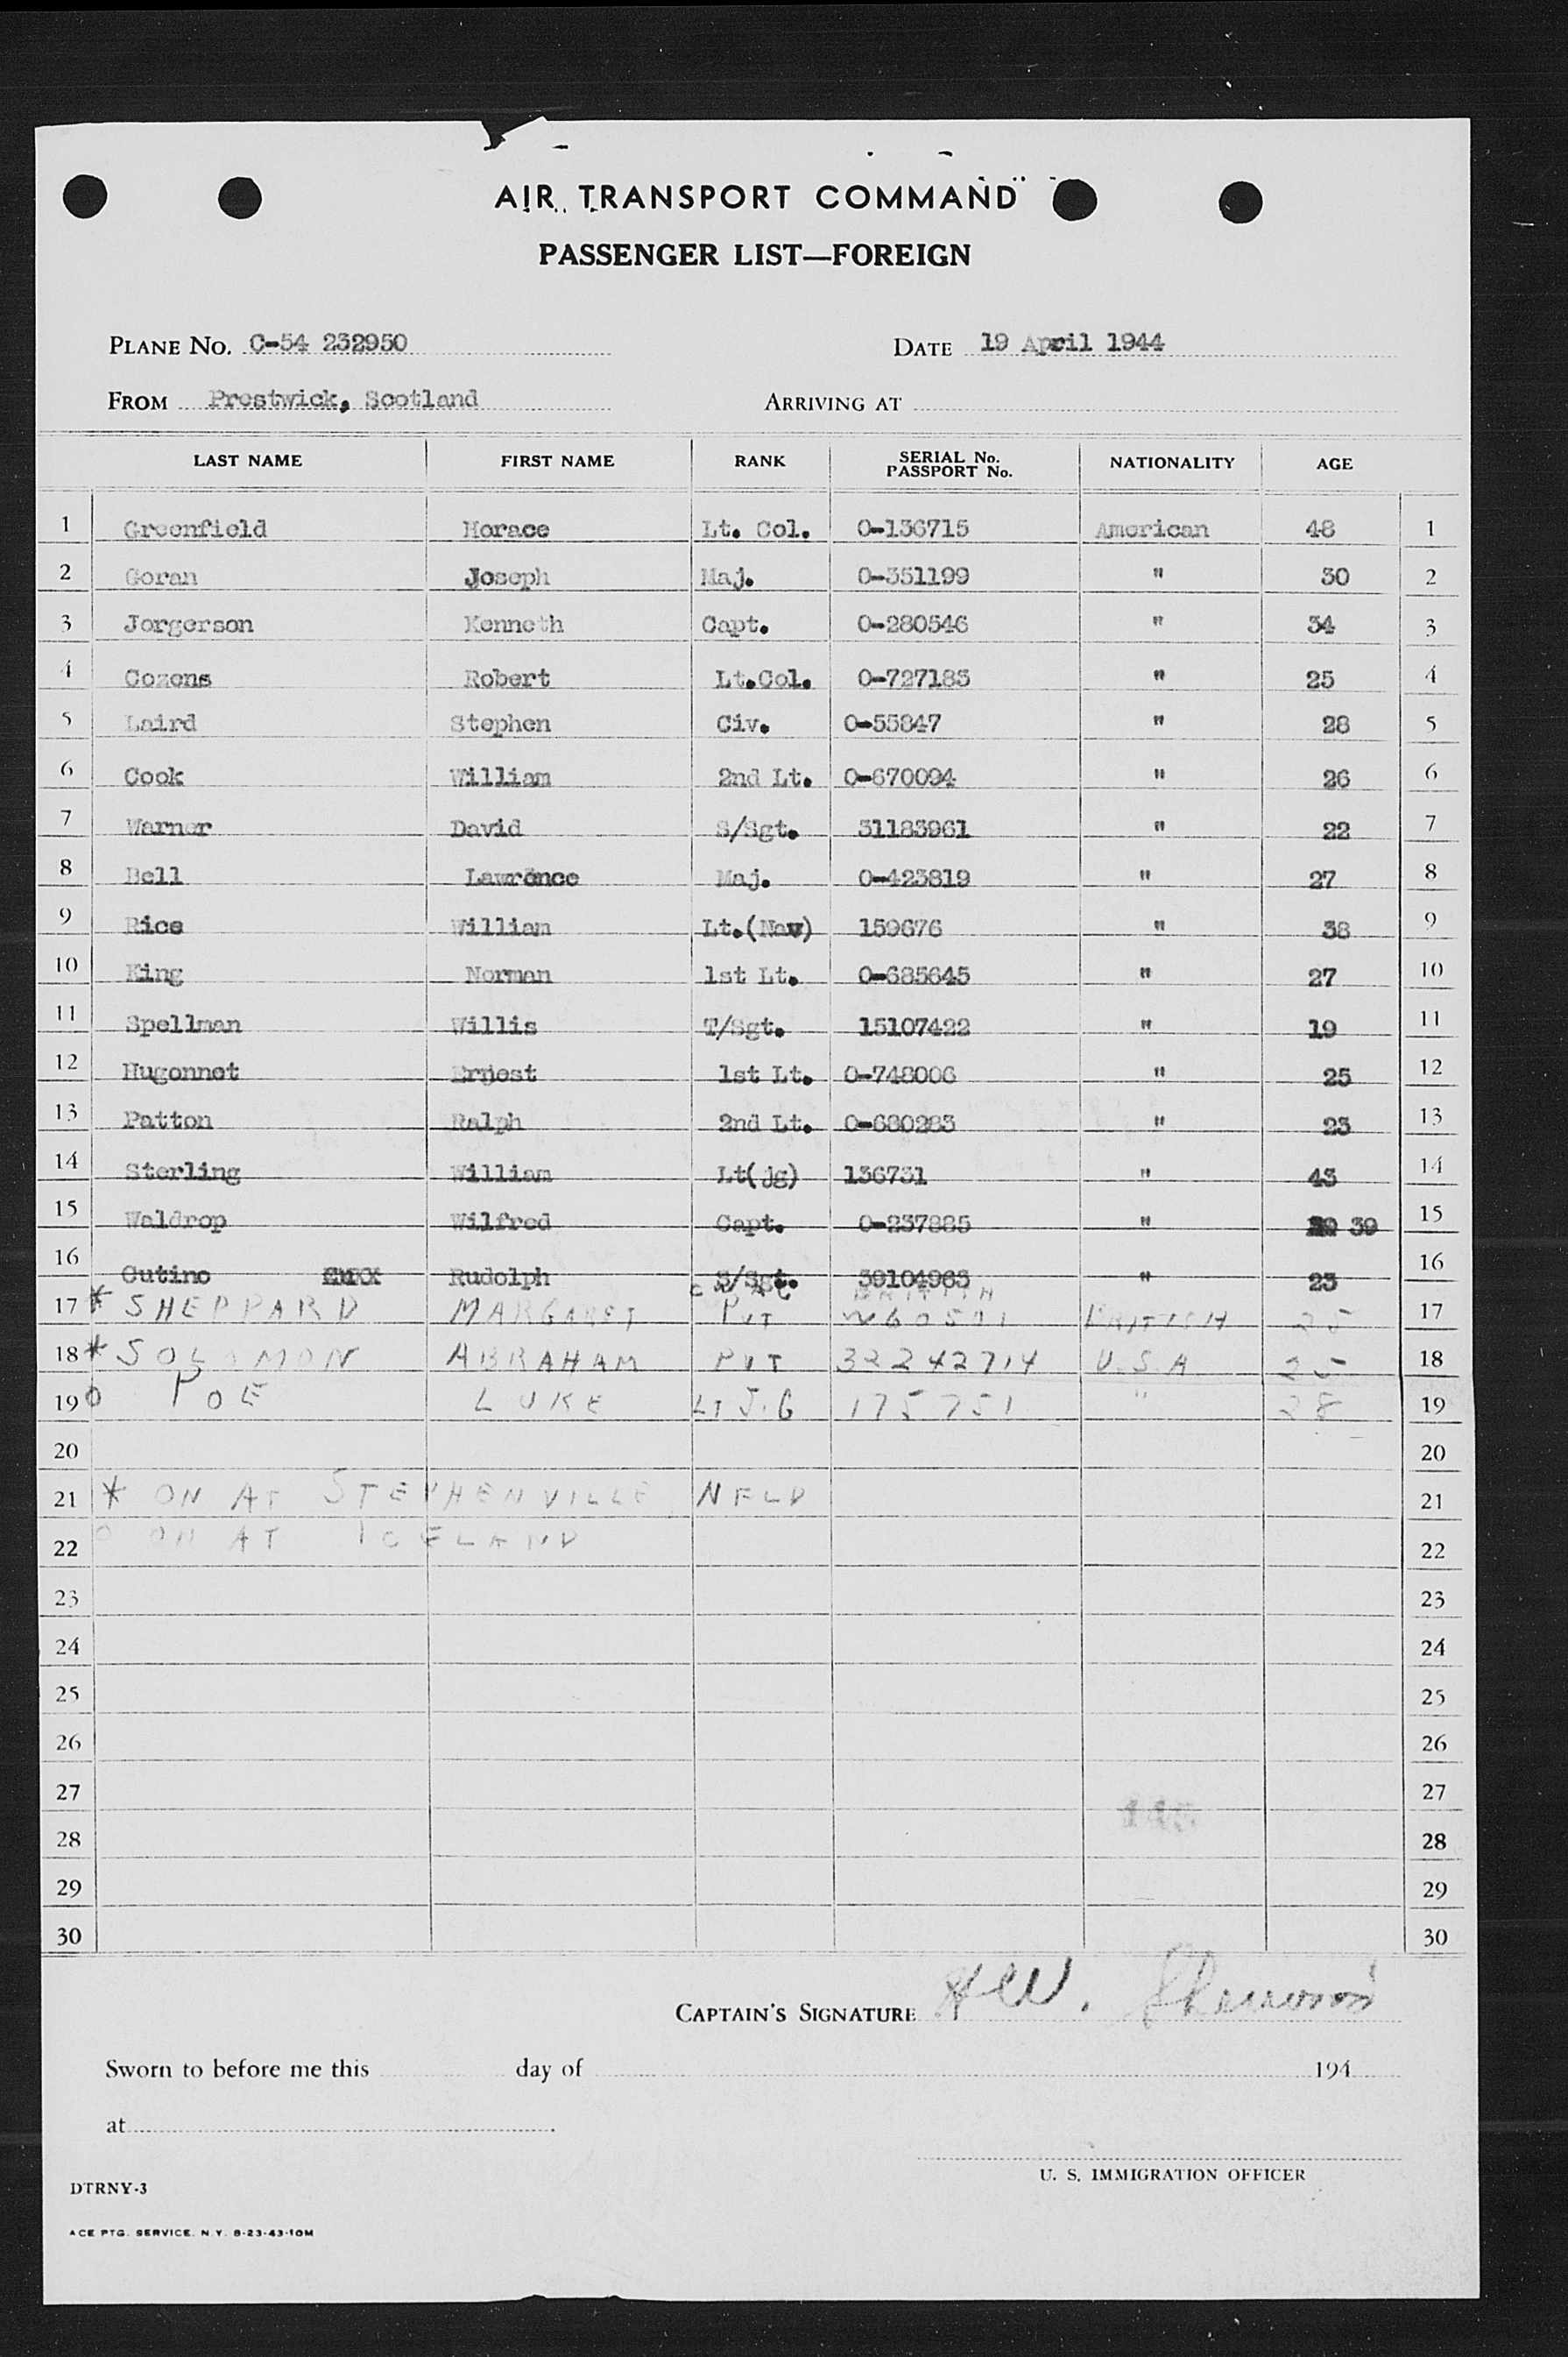 AIR TRANSPORT COMMAND
PASSENGER LIST—FOREIGN
PLANE No. C-54 232950 DATE 19 April 1944
FROM Prestwick, Scotland ARRIVING AT
LAST NAME FIRST NAME RANK SERIAL No. PASSPORT No. NATIONALITY AGE
1 Greenfield Horace Lt. Col. O-136715 American 48 1
2 Goran Joseph Maj. O-351199 " 30 2
3 Jorgerson Kenneth Capt. O-280546 " 34 3
4 Cozens Robert Lt.Col. O-727185 " 25 4
5 Laird Stephen Civ. O-55847 " 28 5
6 Cook William 2nd Lt. O-670094 " 26 6
7 Warner David S/Sgt. 31183961 " 22 7
8 Bell Lawrence Maj. O-423819 " 27 8
9 Rice William Lt.(Nav) 159676 " 38 9
10 King Norman 1st Lt. O-685645 " 27 10
11 Spellman Willis T/Sgt. 15107422 " 19 11
12 Hugonnet Ernest 1st Lt. O-748006 " 25 12
13 Patton Ralph 2nd Lt. O-680283 " 23 13
14 Sterling William Lt(jg) 136731 " 43 14
15 Waldrop Wilfred Capt. O-237885 " 39 15
16 Cutino Rudolph S/Sgt. 39104963 " 23 16
17 * SHEPPARD MARGARET PVT BRITISH 25 17
18 * SOLOMON ABRAHAM PVT 32242714 U.S.A 25 18
19 o POE LUKE LT J.G 175751 " 28 19
20 20
21 * ON AT STEPHENVILLE NFLD 21
22 o ON AT ICELAND 22
23 23
24 24
25 25
26 26
27 27
28 28
29 29
30 30
CAPTAIN'S SIGNATURE H W. Sherwood
Sworn to before me this day of 194
at
U. S. IMMIGRATION OFFICER
DTRNY-3
ACE PTG. SERVICE. N.Y. 8-23-43-10M